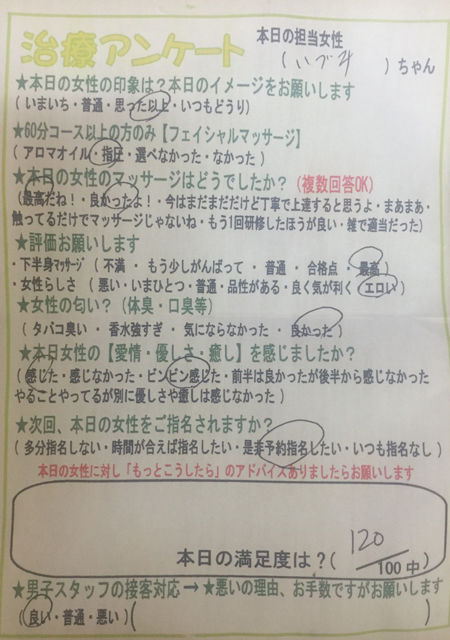 治療アンケート
本日の担当女性
(いづみ)ちゃん
★本日の女性の印象は?本日のイメージをお願いします
(いまいち・普通・思った以上・いつもどうり)
★60分コース以上の方のみ【フェイシャルマッサージ】
(アロマオイル・指圧・選べなかった・なかった)
★本日の女性のマッサージはどうでしたか?(複数回答OK)
(最高だね!・良かったよ!・今はまだまだだけど丁寧で上達すると思うよ・まあまあ・
触ってるだけでマッサージじゃないね・もう1回研修したほうが良い・雑で適当だった)
★評価お願いします
・下半身マッサージ(不満・もう少しがんばって・普通・合格点・最高)
・女性らしさ(悪い・いまひとつ・普通・品性がある・良く気が利く・エロい)
★女性の匂い?(体臭・口臭等)
(タバコ臭い・香水強すぎ・気にならなかった・良かった)
★本日女性の【愛情・優しさ・癒し】を感じましたか?
(感じた・感じなかった・ビンビン感じた・前半は良かったが後半から感じなかった
やることやってるが別に優しさや癒しは感じなかった)
★次回、本日の女性をご指名されますか?
(多分指名しない・時間が合えば指名したい・是非予約指名したい・いつも指名なし)
本日の女性に対し「もっとこうしたら」のアドバイスありましたらお願いします
本日の満足度は?(120/100中)
★男子スタッフの接客対応→★悪いの理由、お手数ですがお願いします
(良い・普通・悪い)( )